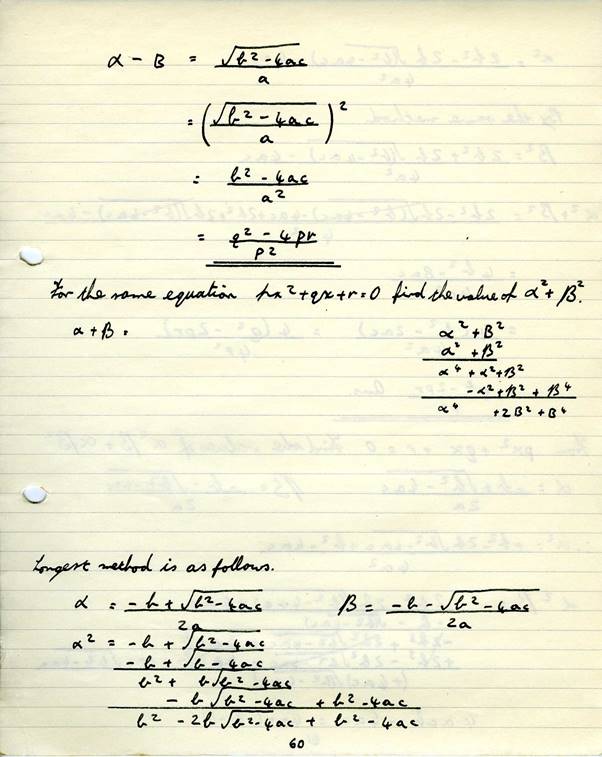 α - β = √b² - 4ac / a
= (√b² - 4ac / a)²
= b² - 4ac / a²
= q² - 4pr / p²
For the same equation px² + qx + r = 0 find the value of α² + β².
α + β =
α² + β²
α² + β²
α⁴ + α² + β²
- α² + β² + β⁴
α⁴ + 2β² + β⁴
Longest method is as follows.
α = -b + √b² - 4ac / 2a β = -b - √b² - 4ac / 2a
α² = -b + √b² - 4ac
-b + √b - 4ac
b² + b√b² - 4ac
- b√b² - 4ac + b² - 4ac
b² - 2b√b² - 4ac + b² - 4ac
60